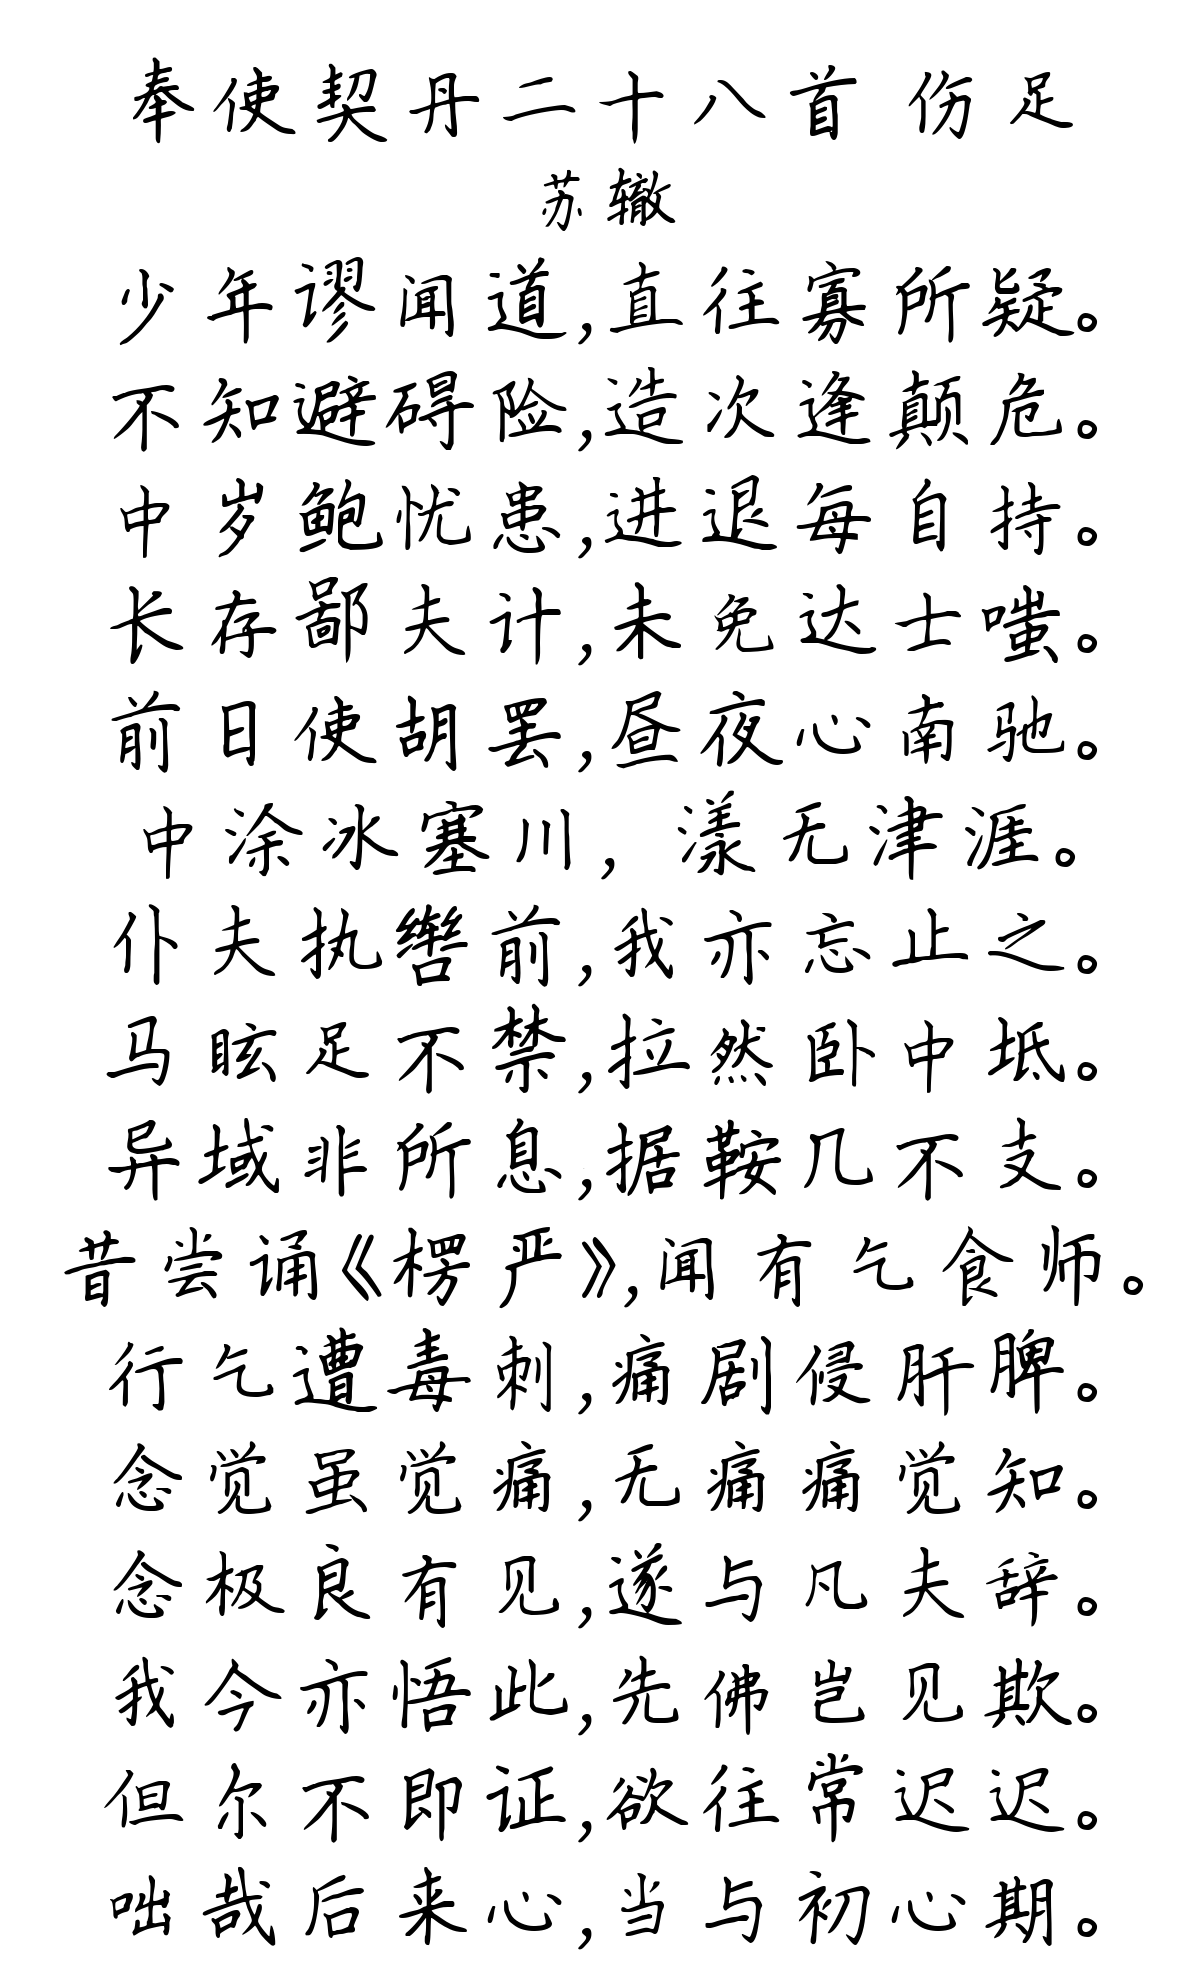 奉使契丹二十八首 伤足
苏辙
少年谬闻道,直往寡所疑。
不知避碍险,造次逢颠危。
中岁鲍忧患,进退每自持。
长存鄙夫计,未免达士嗤。
前日使胡罢,昼夜心南驰。
中涂冰塞川,漾无津涯。
仆夫执辔前,我亦忘止之。
马眩足不禁,拉然卧中坻。
异域非所息,据鞍几不支。
昔尝诵《楞严》,闻有乞食师。
行乞遭毒刺,痛剧侵肝脾。
念觉虽觉痛,无痛痛觉知。
念极良有见,遂与凡夫辞。
我今亦悟此,先佛岂见欺。
但尔不即证,欲往常迟迟。
咄哉后来心,当与初心期。